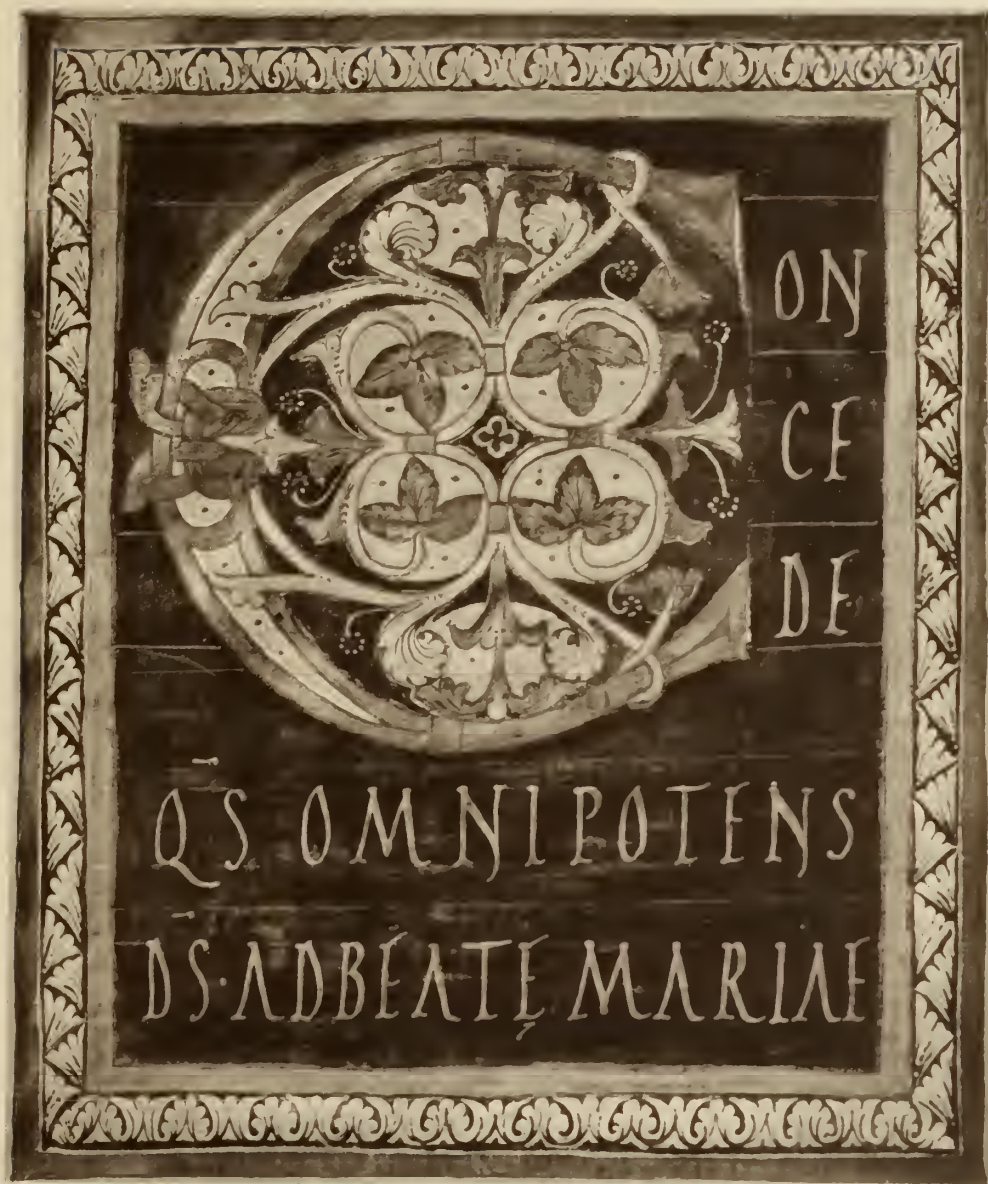 C
ON
CE
DE
Q̄S OMNIPOTENS
D̄S·ADBEATĘ MARIAE